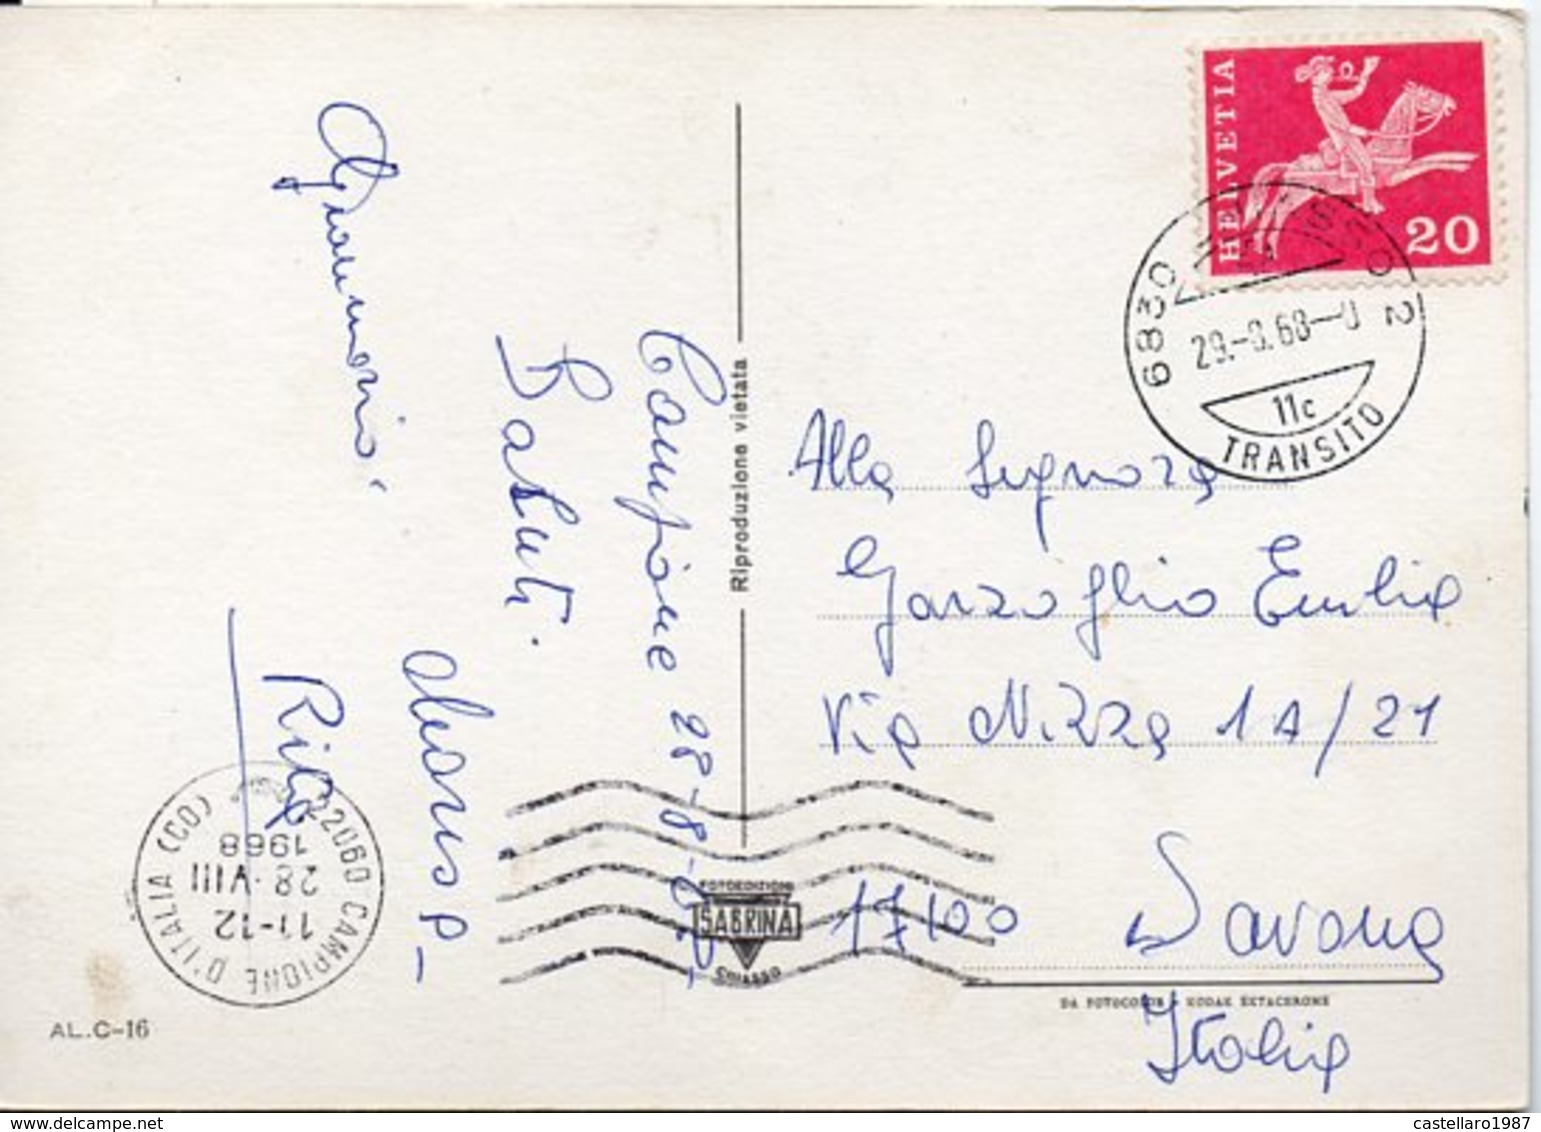 Campione 28-8-68
Saluti.
Rita
Riproduzione vietata
FOTOEDIZIONI
SABRINA
CHIASSO
HELVETIA
20
6830 CHIASSO 2
29.-8.68--
11c
TRANSITO
Alla Signora
Garzoglio Emilia
Via Nizza 1A/21
17100 Savona
Italia
DA FOTOCOLOR - KODAK EKTACHROME
22060 CAMPIONE D'ITALIA (CO)
11-12
28·VIII
1968
AL.C-16
castellaro1987